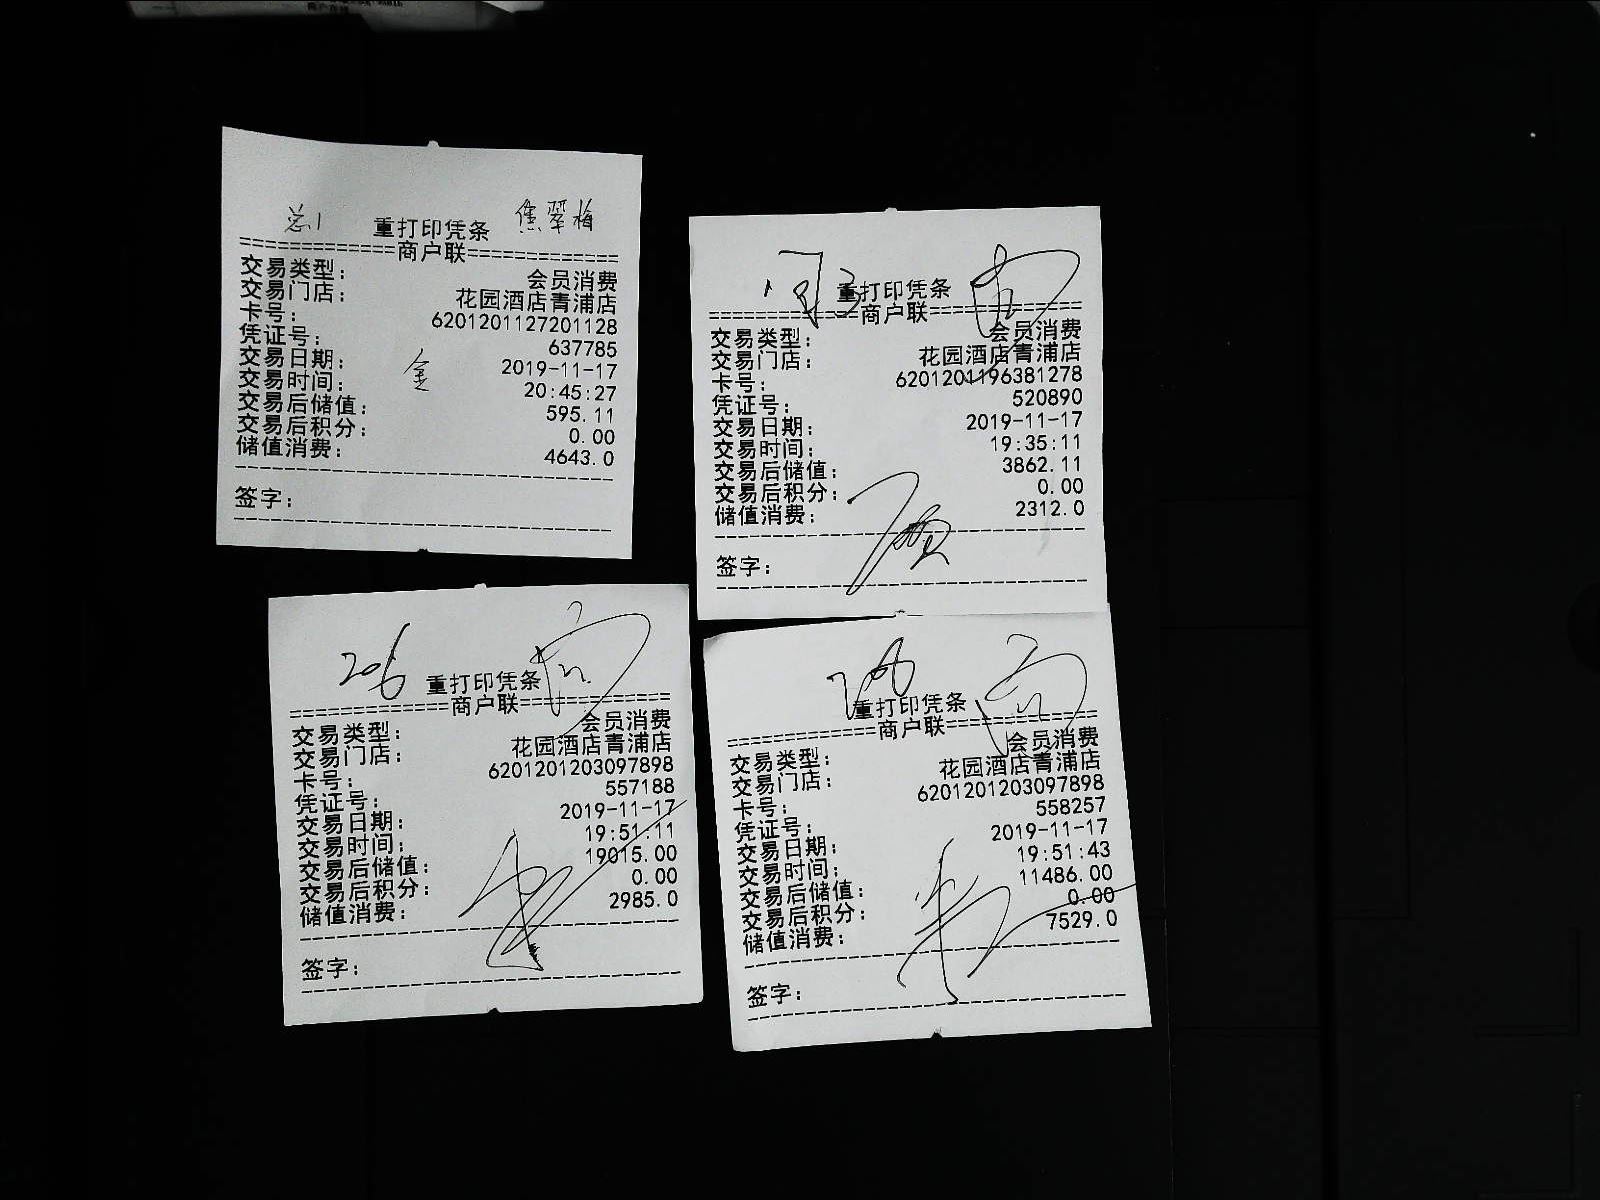 总1 重打印凭条 焦翠梅
=============商户联=============
交易类型： 会员消费
交易门店： 花园酒店青浦店
卡号： 6201201127201128
凭证号： 637785
交易日期： 2019-11-17
交易时间： 20:45:27
交易后储值： 595.11
交易后积分： 0.00
储值消费： 4643.0
签字：
重打印凭条
=============商户联=============
交易类型： 会员消费
交易门店： 花园酒店青浦店
卡号： 6201201196381278
凭证号： 520890
交易日期： 2019-11-17
交易时间： 19:35:11
交易后储值： 3862.11
交易后积分： 0.00
储值消费： 2312.0
签字：
206 重打印凭条
=============商户联=============
交易类型： 会员消费
交易门店： 花园酒店青浦店
卡号： 6201201203097898
凭证号： 557188
交易日期： 2019-11-17
交易时间： 19:51:11
交易后储值： 19015.00
交易后积分： 0.00
储值消费： 2985.0
签字：
206 重打印凭条
=============商户联=============
交易类型： 会员消费
交易门店： 花园酒店青浦店
卡号： 6201201203097898
凭证号： 558257
交易日期： 2019-11-17
交易时间： 19:51:43
交易后储值： 11486.00
交易后积分： 0.00
储值消费： 7529.0
签字：